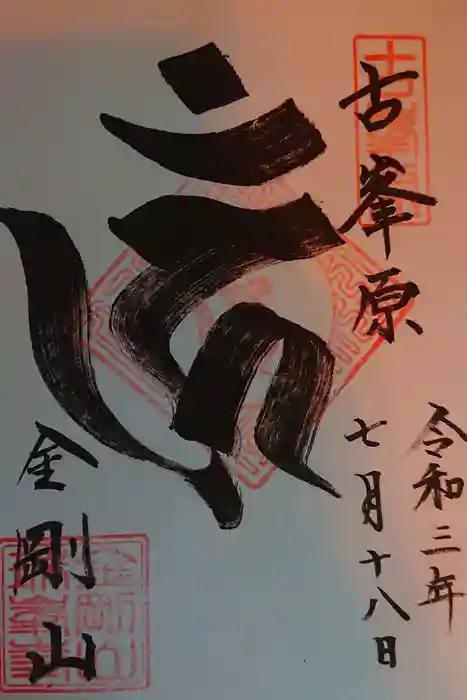 古峯原
令和三年
七月十八日
金剛山